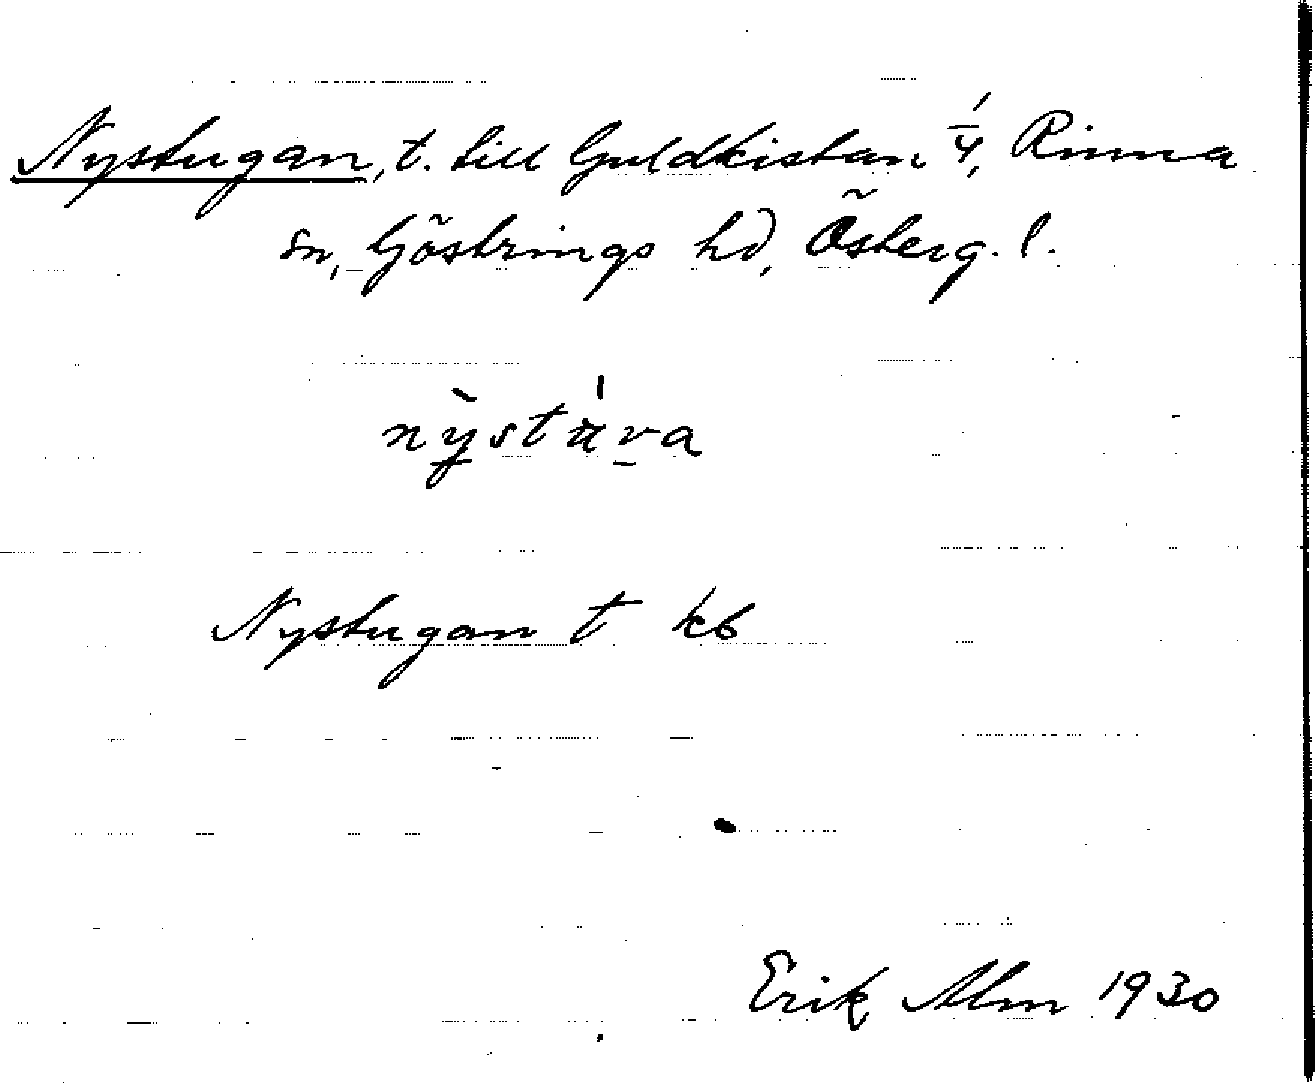 Nystugan, t. till Guldkistan 1/4, Rinna
sn, Göstrings hd, Österg. l.
Nystugan t kb
Erik Alm 1930